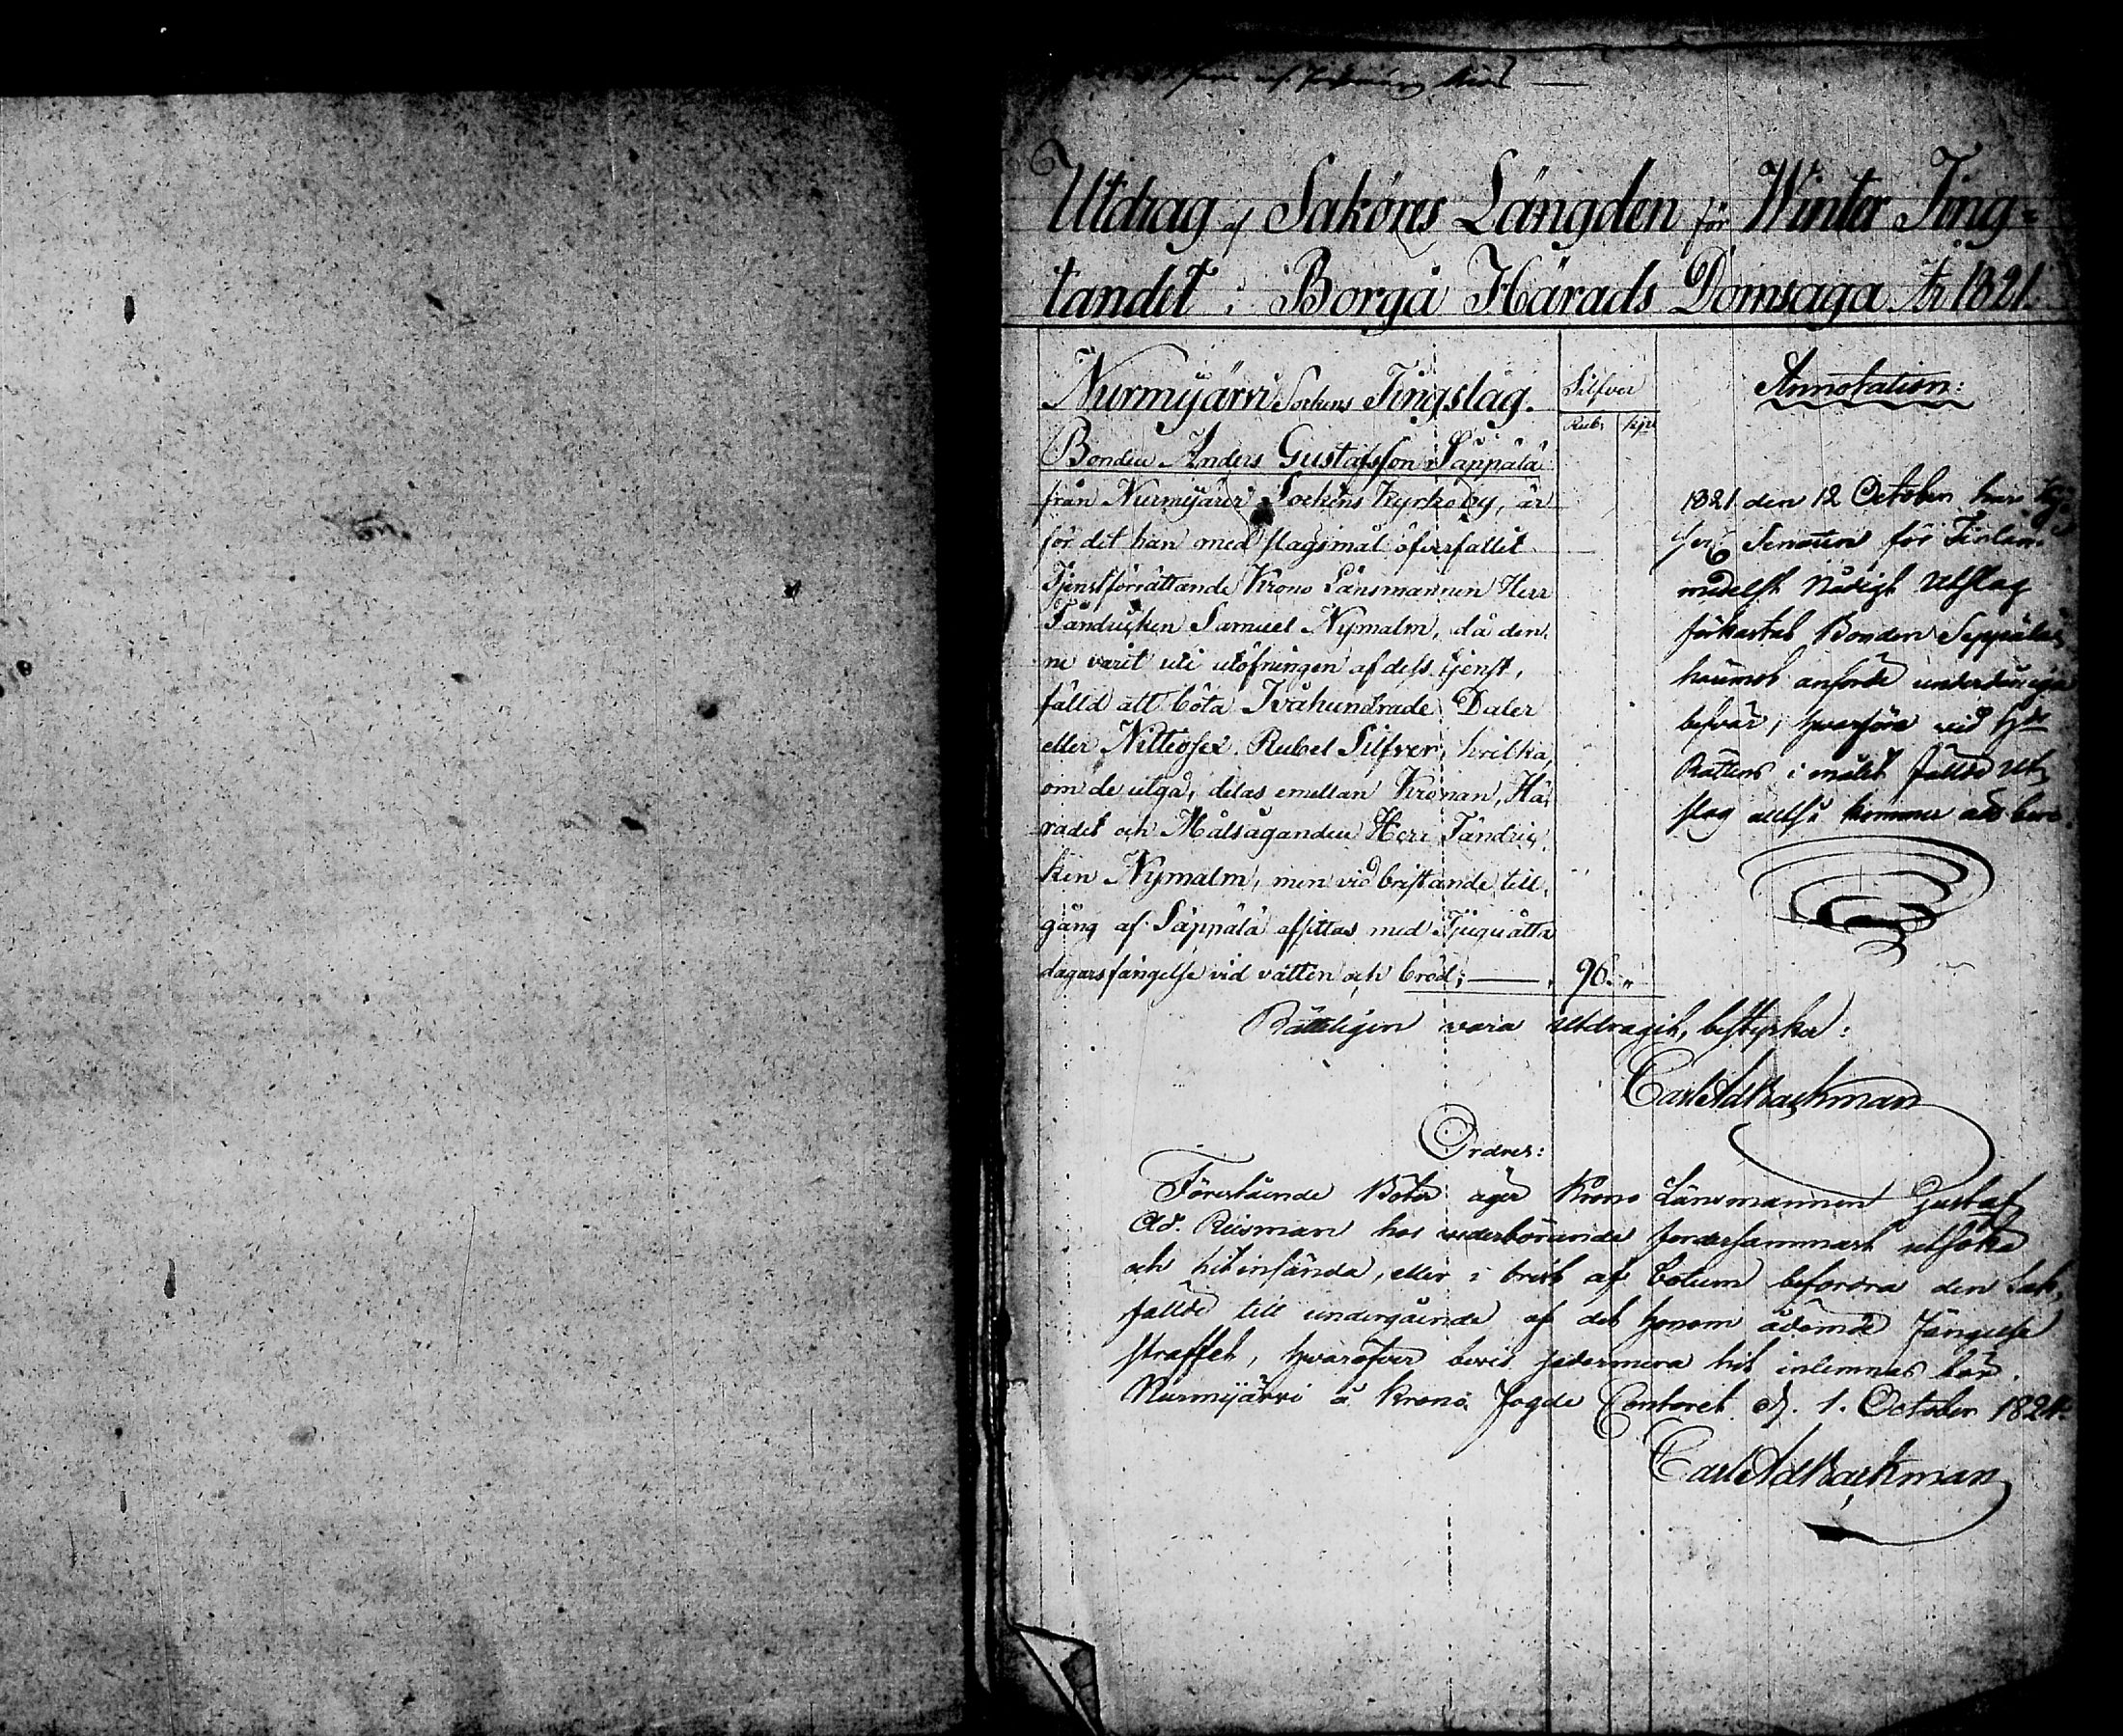 Utdrag af Saköres Längden för Winter Ting=
tandet i Borgå Härads Domsaga År 1821.
Nurmijärvi Sockens Tingslag.
Silfver
Annotation:
Rub. kop.
Bonden Anders Gustafsson Säppälä
från Nurmijärvi Sockens Kyrkoby, är
för det han med slagsmål öfverfallit
Tjenstförrättande Krono Länsmannen Herr
Fändricken Samuel Nymalm, då den,
ne varit uti utöfningen af dess tjenst,
fälld att böta Tvåhundrade Daler
eller Nittiosex Rubel Silfver, hvilka,
om de utgå, delas emellan Kronan, Hä,
radet och Målsäganden Herr Fändric,
ken Nymalm, men vid bristande till,
gång af Säppälä afsittas med Tjuguåtta
dagars fängelse vid vatten och bröd; — 96. "
1821 den 12 October har
Senaten för Finland
medelst Nådigt Utslag
förkastat Bonden Seppäläs
häremot anförde underdåniga
besvär, hvarföre vid
Rättens i målet fällde Ut,
slag altså kommer att bero.
Rätteligen vara Utdragit, bestyrka:
Carl Ad Backman
Ordres:
Förestående Böter äger Krono Länsmannen Gustaf
Ad. Reisman hos vederbörande fordersammast utsöka
och hit insända, eller i brist af botum befordra den sak,
fällde till undergående af det honom ådömde Fängelse
straffet, hvaröfver bevis hit inlemnas bör.
Nurmijärvi å Krono Fogde Contoret d. 1. October 1821.
Carl Ad Backman